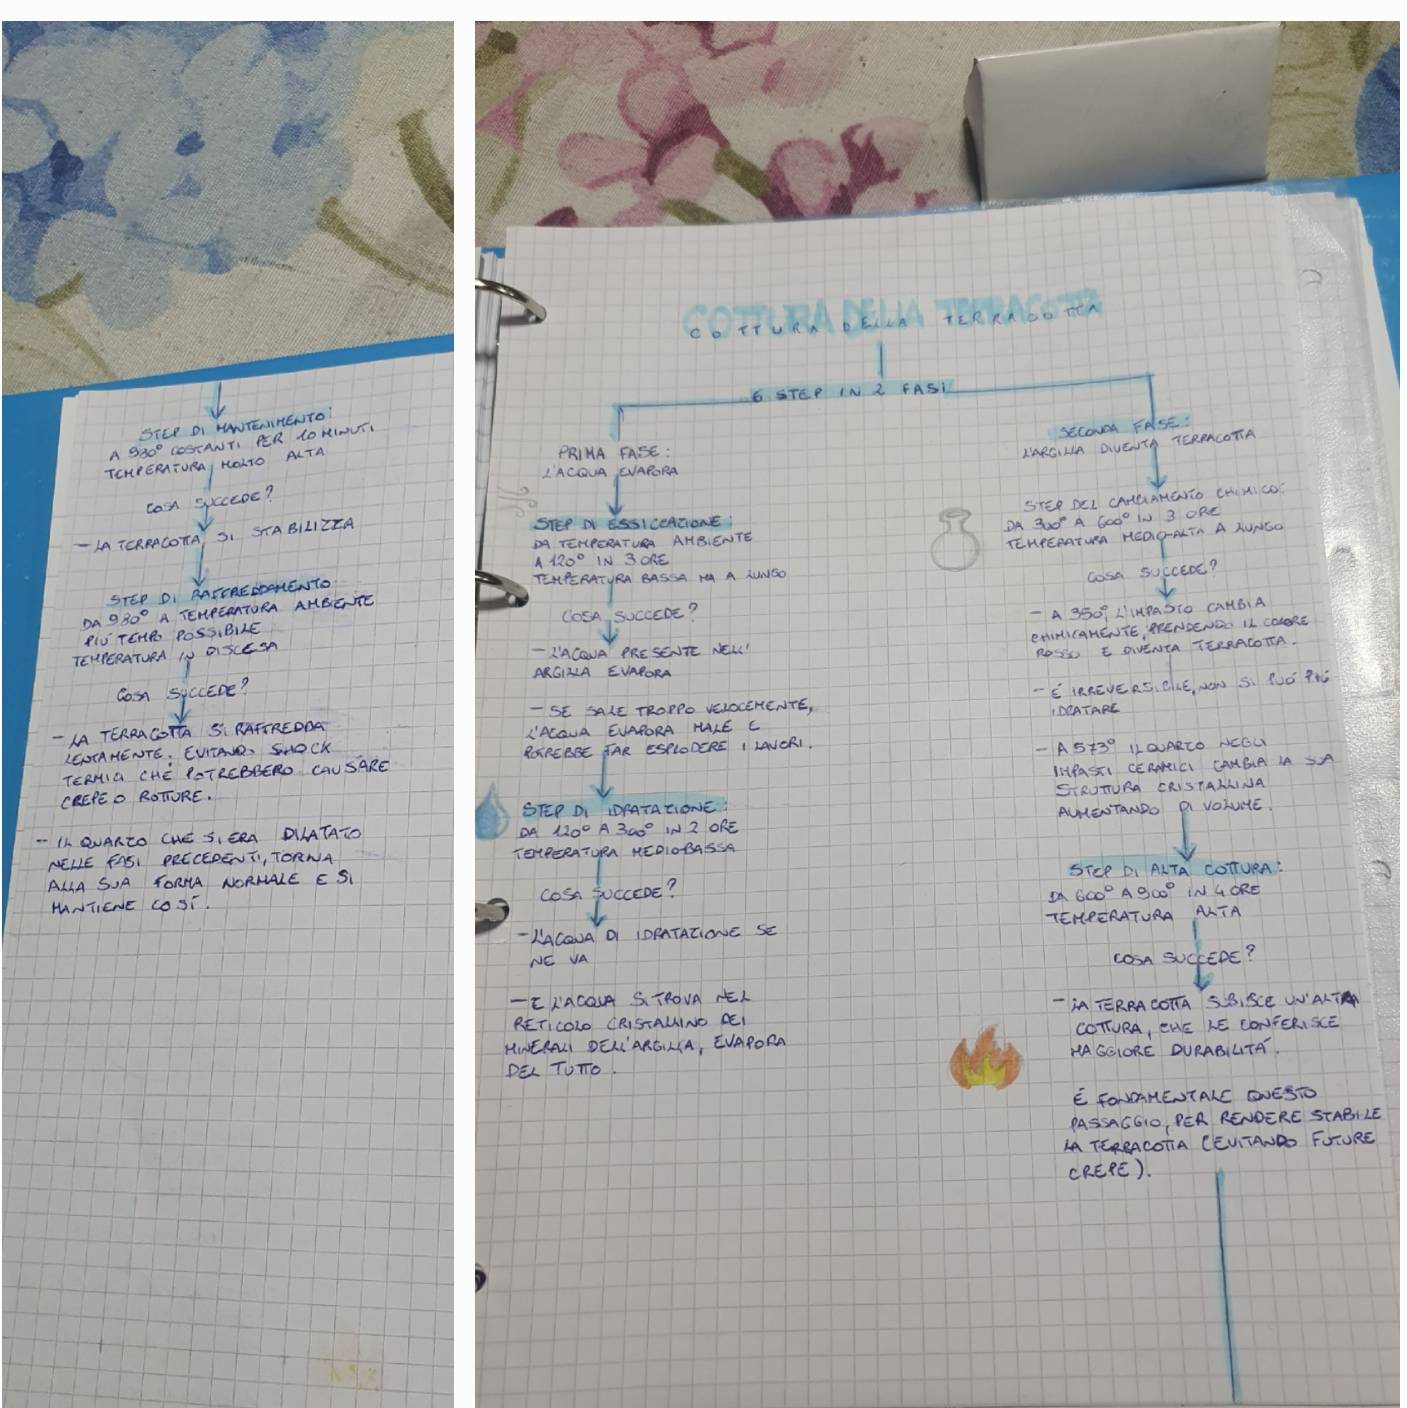 COTTURA DELLA TERRACOTTA
6 STEP IN 2 FASI
PRIMA FASE:
L'ACQUA EVAPORA
STEP DI ESSICCAZIONE:
DA TEMPERATURA AMBIENTE
A 120° IN 3 ORE
TEMPERATURA BASSA MA A LUNGO
COSA SUCCEDE?
- L'ACQUA PRESENTE NELL'
ARGILLA EVAPORA
- SE SALE TROPPO VELOCEMENTE,
L'ACQUA EVAPORA MALE E
POTREBBE FAR ESPLODERE I LAVORI.
STEP DI IDRATAZIONE:
DA 120° A 300° IN 2 ORE
TEMPERATURA MEDIO-BASSA
COSA SUCCEDE?
- L'ACQUA DI IDRATAZIONE SE
NE VA
- E L'ACQUA SI TROVA NEL
RETICOLO CRISTALLINO DEI
MINERALI DELL'ARGILLA, EVAPORA
DEL TUTTO.
SECONDA FASE:
L'ARGILLA DIVENTA TERRACOTTA
STEP DEL CAMBIAMENTO CHIMICO:
DA 300° A 600° IN 3 ORE
TEMPERATURA MEDIO-ALTA A LUNGO
COSA SUCCEDE?
- A 350°, L'IMPASTO CAMBIA
CHIMICAMENTE, PRENDENDO IL COLORE
ROSSO E DIVENTA TERRACOTTA.
- É IRREVERSIBILE, NON SI PUÓ PIÚ
IDRATARE
- A 573° IL QUARZO NEGLI
IMPASTI CERAMICI CAMBIA LA SUA
STRUTTURA CRISTALLINA
AUMENTANDO DI VOLUME.
STEP DI ALTA COTTURA:
DA 600° A 900° IN 4 ORE
TEMPERATURA ALTA
COSA SUCCEDE?
- LA TERRACOTTA SUBISCE UN'ALTRA
COTTURA, CHE LE CONFERISCE
MAGGIORE DURABILITÁ.
É FONDAMENTALE QUESTO
PASSAGGIO, PER RENDERE STABILE
LA TERRACOTTA (EVITANDO FUTURE
CREPE).
STEP DI MANTENIMENTO:
A 980° COSTANTI PER 10 MINUTI
TEMPERATURA MOLTO ALTA
COSA SUCCEDE?
- LA TERRACOTTA SI STABILIZZA
STEP DI RAFFREDDAMENTO:
DA 980° A TEMPERATURA AMBIENTE
PIÚ TEMPO POSSIBILE
TEMPERATURA IN DISCESA
COSA SUCCEDE?
- LA TERRACOTTA SI RAFFREDDA
LENTAMENTE, EVITANDO SHOCK
TERMICI CHE POTREBBERO CAUSARE
CREPE O ROTTURE.
- IL QUARZO CHE SI ERA DILATATO
NELLE FASI PRECEDENTI, TORNA
ALLA SUA FORMA NORMALE E SI
MANTIENE COSÍ.